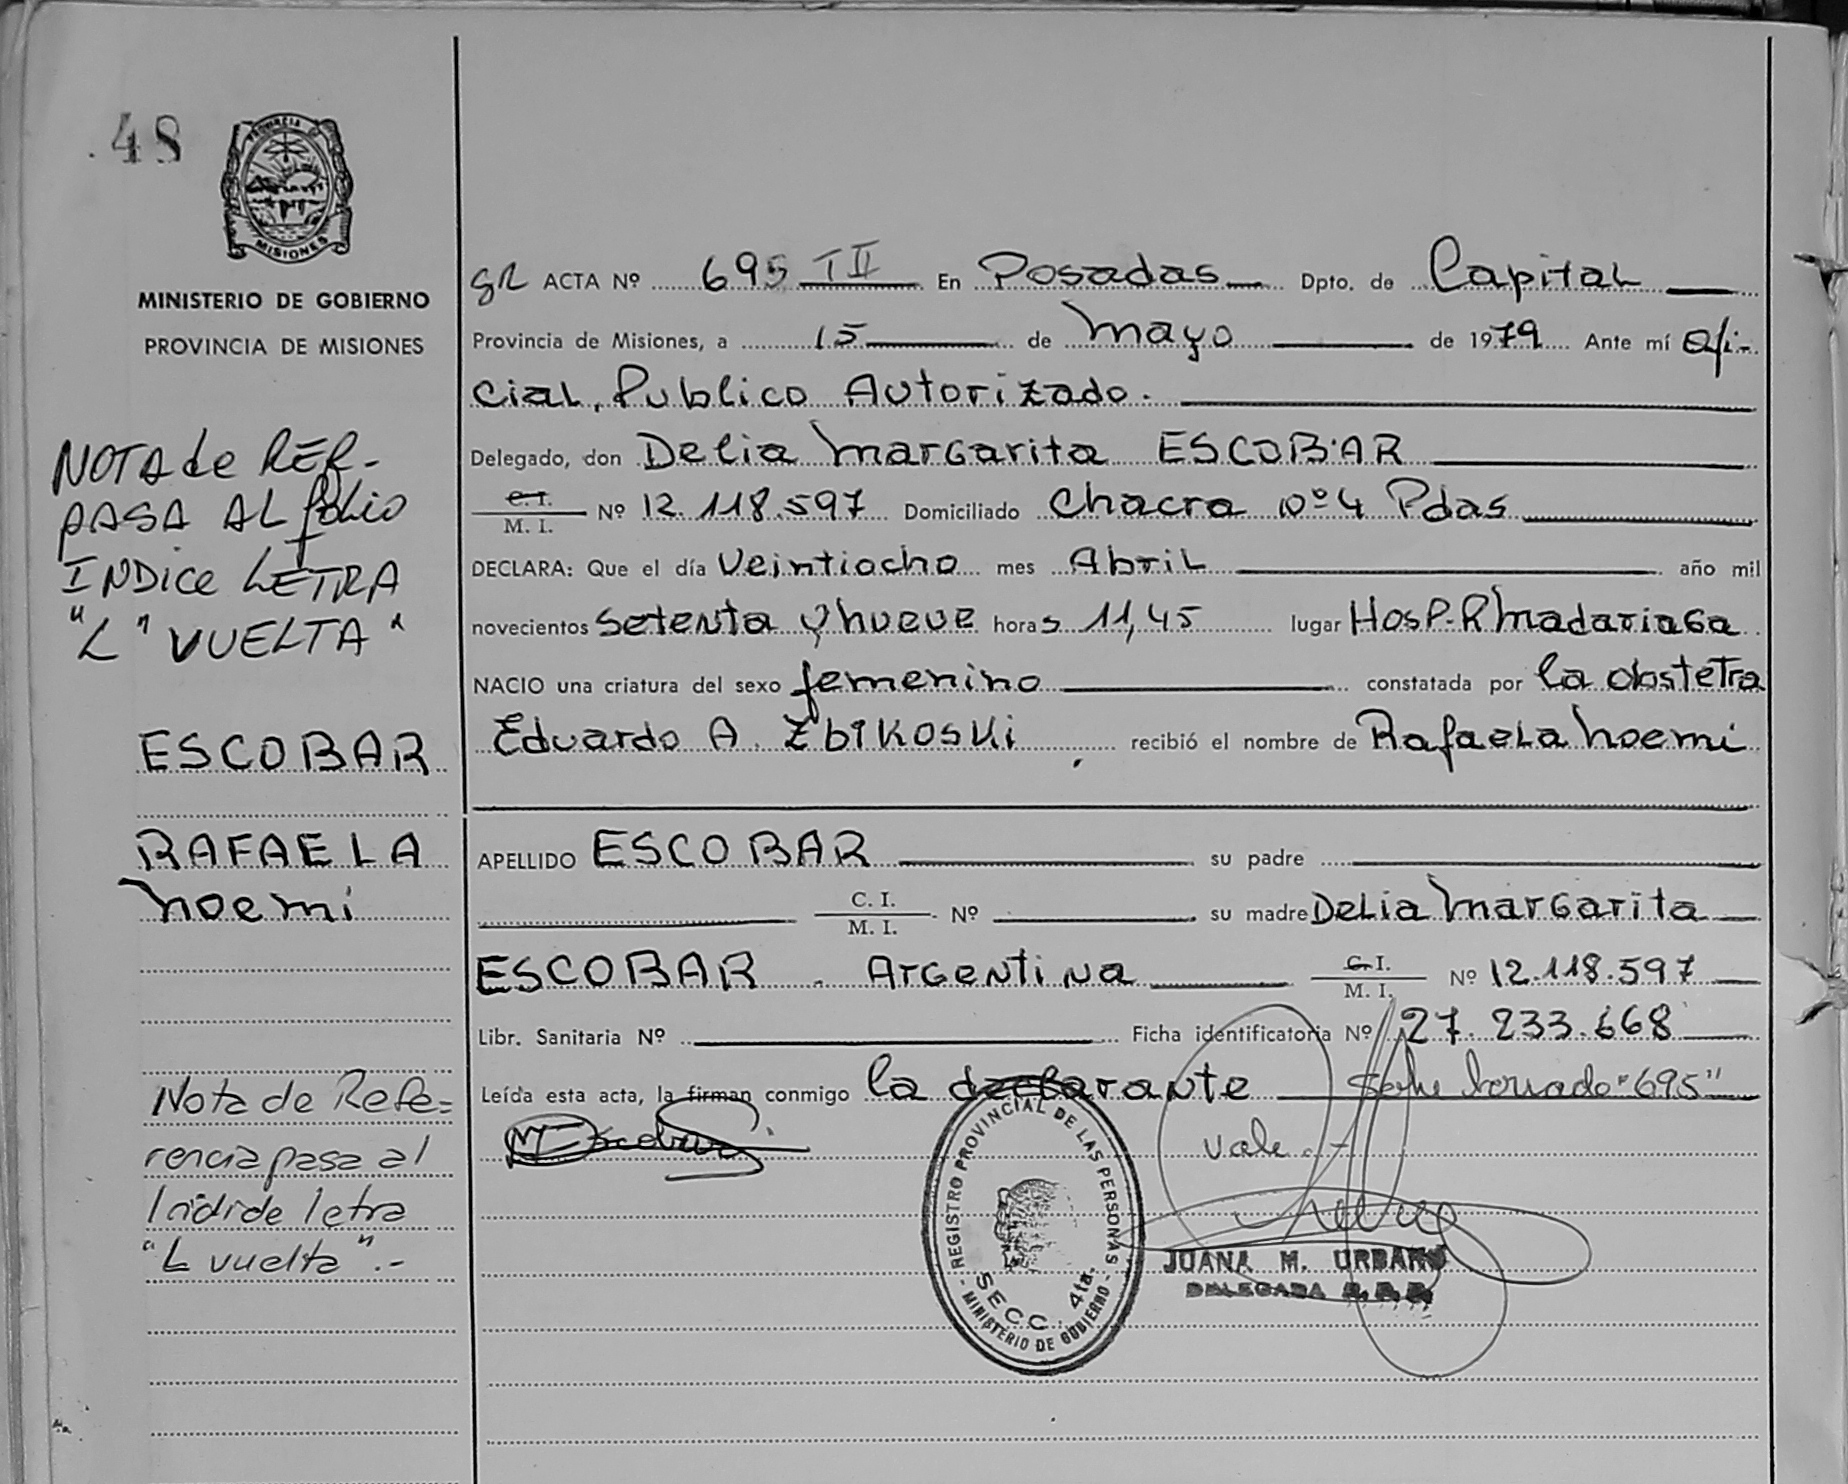 48
PROVINCIA DE
MISIONES
MINISTERIO DE GOBIERNO
PROVINCIA DE MISIONES
NOTA de REF-
PASA AL folio
INDice LETRA
"L" VUELTA"
ESCOBAR
RAFAELA
Noemi
Nota de Refe=
rencia pasa al
Indide letra
"L vuelta".-
ACTA Nº 695 TII En Posadas Dpto. de Capital
Provincia de Misiones, a 15 de Mayo de 1979 Ante mí Ofi-
cial, Publico Autorizado.
Delegado, don Delia Margarita ESCOBAR
C.I.
M. I. Nº 12.118.597 Domiciliado Chacra nº 4 Pdas
DECLARA: Que el día Veintiocho mes Abril año mil
novecientos setenta y nueve horas 11,45 lugar Hosp. R Madariaga
NACIO una criatura del sexo femenino constatada por la obstetra
Eduardo A. Zbikoski, recibió el nombre de Rafaela Noemi
APELLIDO ESCOBAR su padre
C. I.
M. I. Nº su madre Delia Margarita
ESCOBAR. Argentina C.I.
M. I. Nº 12.118.597
Libr. Sanitaria Nº Ficha identificatoria Nº 27.233.668
Leída esta acta, la firman conmigo la declarante Sobre borrado "695"
Vale.-
REGISTRO PROVINCIAL DE LAS PERSONAS
SECC. 4ta.
- MINISTERIO DE GOBIERNO -
JUANA M. URBANO
DELEGADA